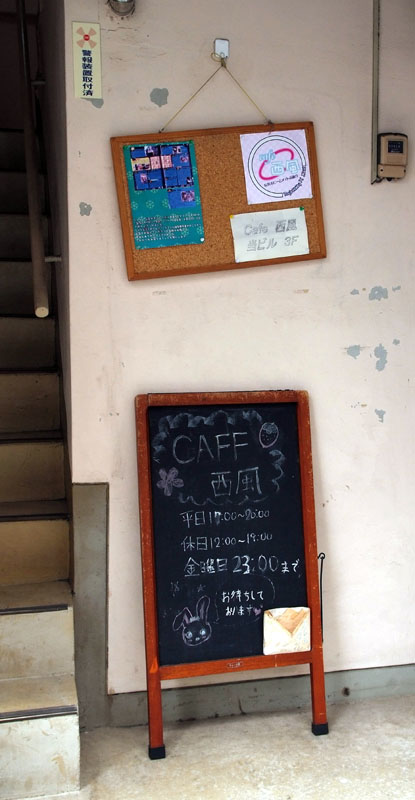 警報装置取付済
Cafe 西風
当ビル 3F
CAFE
西風
平日17:00~20:00
休日12:00~19:00
金曜日23:00まで
お待ちして
おります